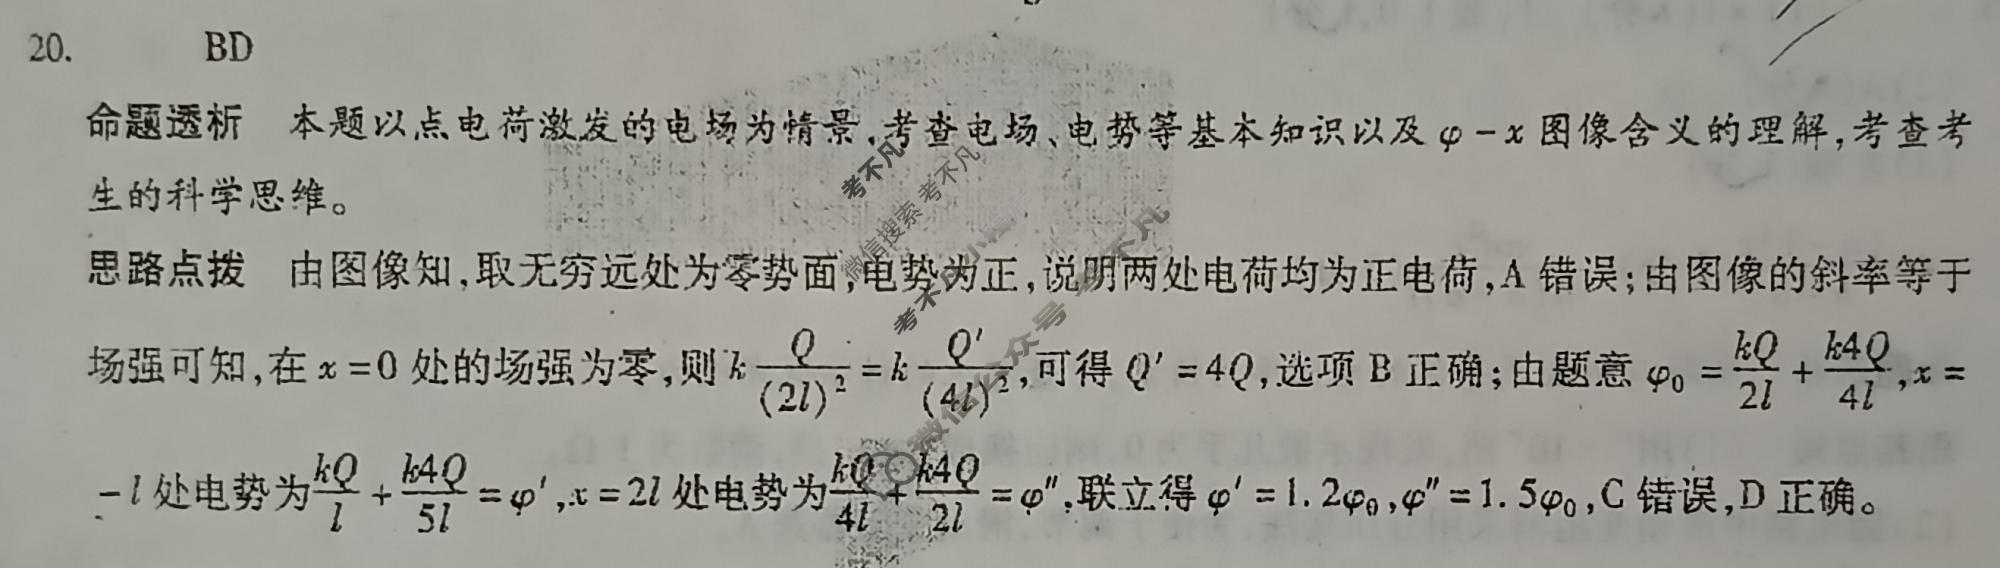 20. BD
命题透析 本题以点电荷激发的电场为情景,考查电场、电势等基本知识以及 φ - x 图像含义的理解,考查考
生的科学思维。
思路点拨 由图像知,取无穷远处为零势面,电势为正,说明两处电荷均为正电荷,A 错误;由图像的斜率等于
场强可知,在 x = 0 处的场强为零,则 k Q/(2l)² = k Q′/(4l)²,可得 Q′ = 4Q,选项 B 正确;由题意 φ₀ = kQ/2l + k4Q/4l,x =
-l 处电势为 kQ/l + k4Q/5l = φ′,x = 2l 处电势为 kQ/4l + k4Q/2l = φ″,联立得 φ′ = 1.2φ₀,φ″ = 1.5φ₀,C 错误,D 正确。
考不凡
微信搜索 考不凡